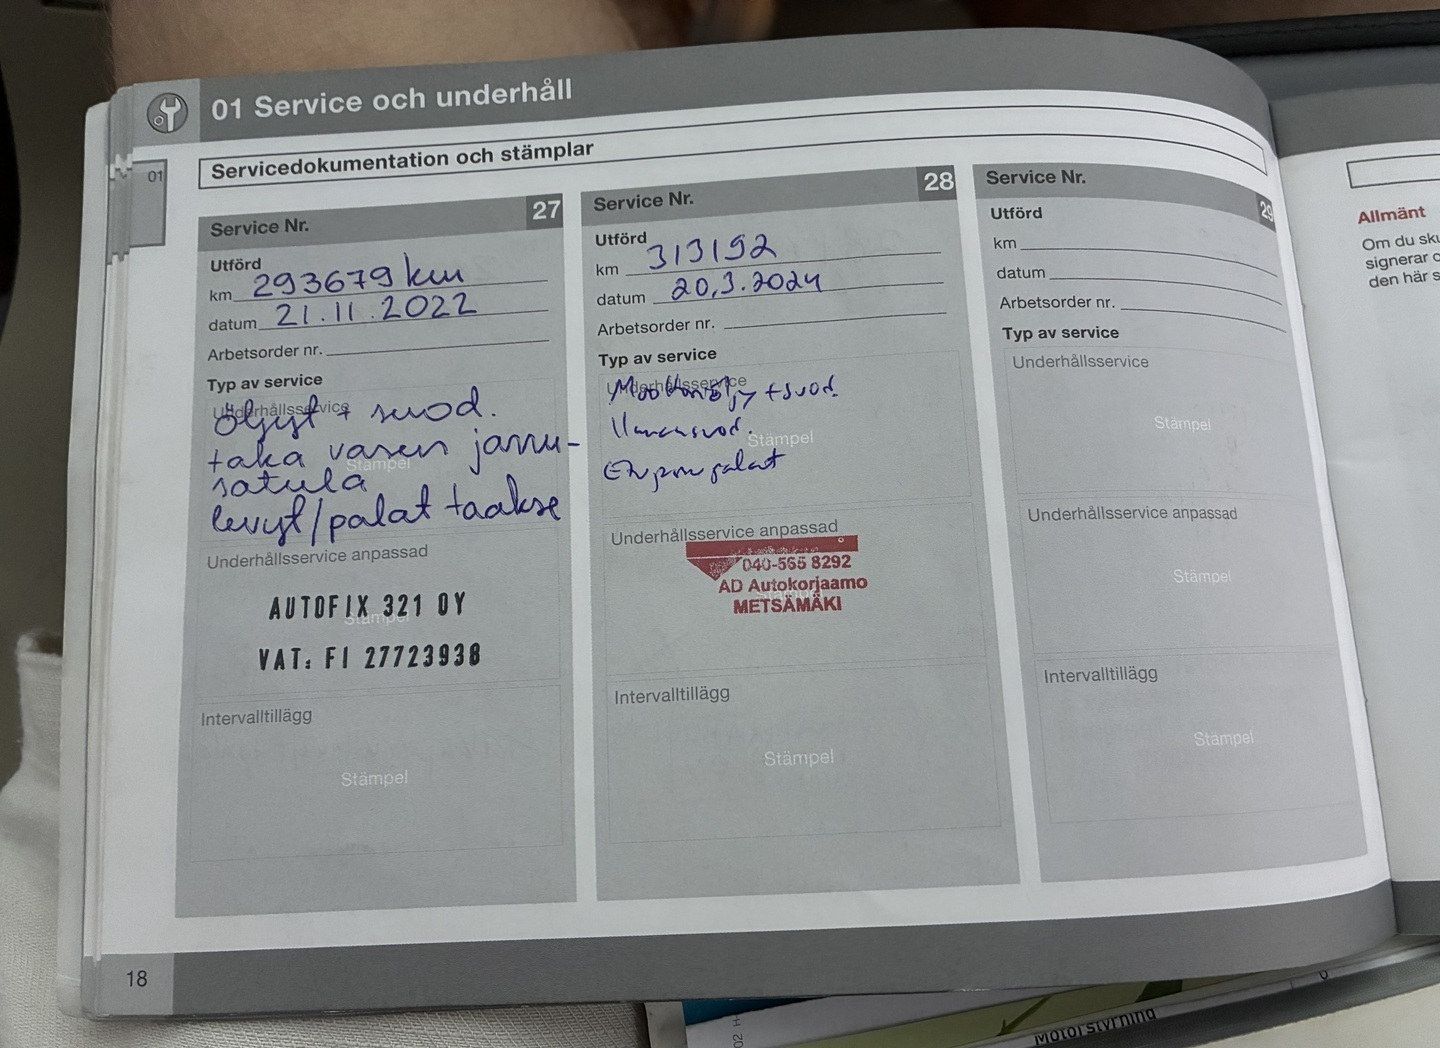 01 Service och underhåll
Servicedokumentation och stämplar
01
Service Nr. 27
Utförd
km 293679 km
datum 21.11.2022
Arbetsorder nr.
Typ av service
Underhållsservice
Öljyt + suod.
taka vasen jarru-
Stämpel
satula
levyt/palat taakse
Underhållsservice anpassad
AUTOFIX 321 OY
Stämpel
VAT: FI 27723938
Intervalltillägg
Stämpel
Service Nr. 28
Utförd
km 313192
datum 20.3.2024
Arbetsorder nr.
Typ av service
Underhållsservice
Moottoriöljy + suod.
Ilmansuod.
Stämpel
palat
Underhållsservice anpassad
040-565 8292
AD Autokorjaamo
METSÄMÄKI
Intervalltillägg
Stämpel
Service Nr. 29
Utförd
km
datum
Arbetsorder nr.
Typ av service
Underhållsservice
Stämpel
Underhållsservice anpassad
Stämpel
Intervalltillägg
Stämpel
18
Allmänt
Om du
signerar
den här
Motorstyrning